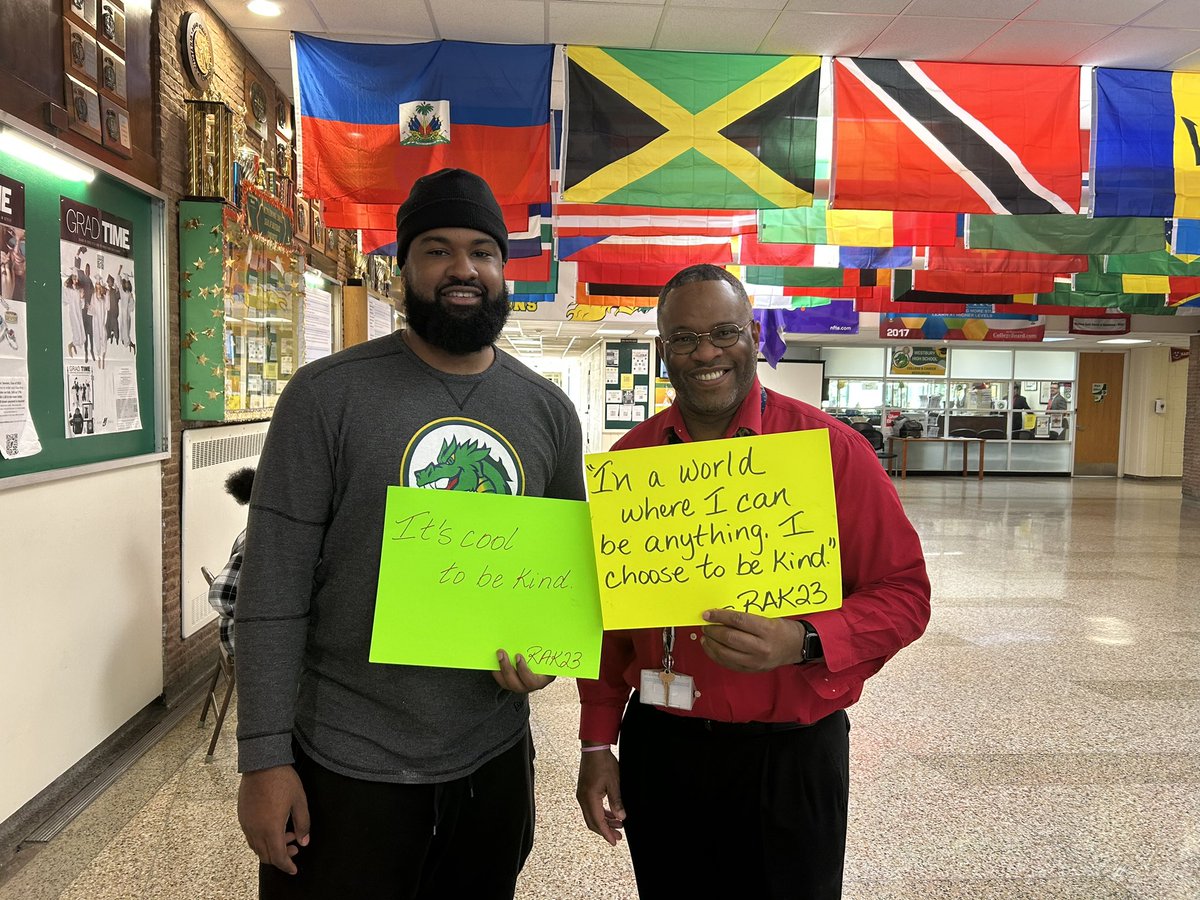 GRAD TIME
It's cool
to be kind.
RAK23
"In a world
where I can
be anything. I
choose to be kind."
- RAK23
nfte.com
2017
CollegeBoard.com
WESTBURY
HIGH SCHOOL